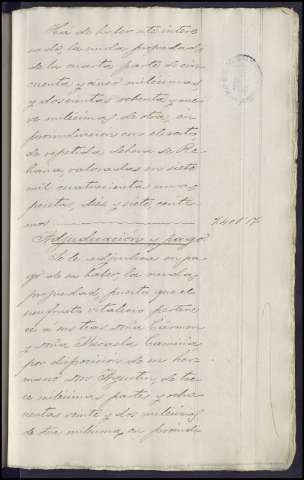 Ha de haber este intere-
sado, la nuda propiedad
de la cuarta parte de cin-
cuenta y cinco milésimas
y doscientas ochenta y nue-
ve milésimas de otra, en
proindivision con el resto
de repetida dehesa de Re-
hana, valoradas en siete
mil cuatrocientas una pe-
setas, diez y siete cénti-
mos 7401'17
Adjudicación y pago
Se le adjudica en pa-
go de su haber la nuda
propiedad, puesto que el
usufructo vitalicio pertene-
ce á sus tias doña Carmen
y doña Micaela
por disposicion de su her-
mano don Agustin, de tre-
ce milésimas partes y ocho-
cientas veinte y dos milésimas
de otra milésima, en proindi-